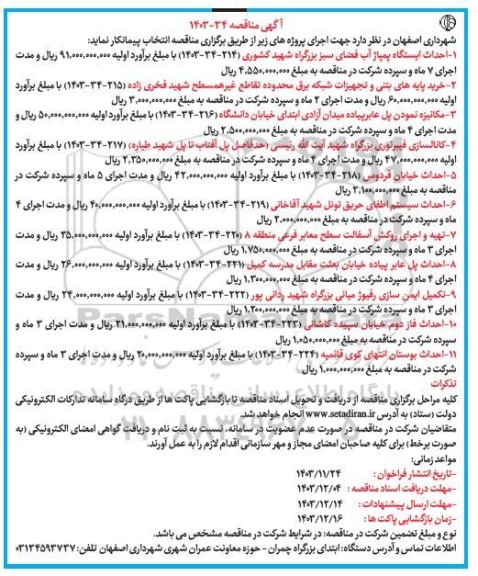 آگهی مناقصه ۳۴-۱۴۰۳
شهرداری اصفهان در نظر دارد جهت اجرای پروژه های زیر از طریق برگزاری مناقصه انتخاب پیمانکار نماید:
۱-احداث ایستگاه پمپاژ آب فضای سبز بزرگراه شهید کشوری (۲۱۴-۳۴-۱۴۰۳) با مبلغ برآورد اولیه ۹۱،۰۰۰،۰۰۰،۰۰۰ ریال و مدت
اجرای ۷ ماه و سپرده شرکت در مناقصه به مبلغ ۴،۵۵۰،۰۰۰،۰۰۰ ریال
۲-خرید پایه های بتنی و تجهیزات شبکه برق محدوده تقاطع غیرهمسطح شهید فخری زاده (۲۱۵-۳۴-۱۴۰۳) با مبلغ برآورد
اولیه ۶۰،۰۰۰،۰۰۰،۰۰۰ ریال و مدت اجرای ۲ ماه و سپرده شرکت در مناقصه به مبلغ ۳،۰۰۰،۰۰۰،۰۰۰ ریال
۳-مکانیزه نمودن پل عابرپیاده میدان آزادی ابتدای خیابان دانشگاه (۲۱۶-۳۴-۱۴۰۳) با مبلغ برآورد اولیه ۵۰،۰۰۰،۰۰۰،۰۰۰ ریال و
مدت اجرای ۴ ماه و سپرده شرکت در مناقصه به مبلغ ۲،۵۰۰،۰۰۰،۰۰۰ ریال
۴-کانالسازی فیبرنوری بزرگراه شهید آیت الله رئیسی (حدفاصل پل آفتاب تا پل شهید طیاره) (۲۱۷-۳۴-۱۴۰۳) با مبلغ برآورد
اولیه ۴۷،۰۰۰،۰۰۰،۰۰۰ ریال و مدت اجرای ۴ ماه و سپرده شرکت در مناقصه به مبلغ ۲،۳۵۰،۰۰۰،۰۰۰ ریال
۵-احداث خیابان فردوس (۲۱۸-۳۴-۱۴۰۳) با مبلغ برآورد اولیه ۴۲،۰۰۰،۰۰۰،۰۰۰ ریال و مدت اجرای ۵ ماه و سپرده شرکت در
مناقصه به مبلغ ۲،۱۰۰،۰۰۰،۰۰۰ ریال
۶-احداث سیستم اطفای حریق تونل شهید آقاخانی (۲۱۹-۳۴-۱۴۰۳) با مبلغ برآورد اولیه ۴۰،۰۰۰،۰۰۰،۰۰۰ ریال و مدت اجرای ۴
ماه و سپرده شرکت در مناقصه به مبلغ ۲،۰۰۰،۰۰۰،۰۰۰ ریال
۷-تهیه و اجرای روکش آسفالت سطح معابر فرعی منطقه ۸ (۲۲۰-۳۴-۱۴۰۳) با مبلغ برآورد اولیه ۳۵،۰۰۰،۰۰۰،۰۰۰ ریال و مدت
اجرای ۳ ماه و سپرده شرکت در مناقصه به مبلغ ۱،۷۵۰،۰۰۰،۰۰۰ ریال
۸-احداث پل عابر پیاده خیابان بعثت مقابل مدرسه کمیل (۲۲۱-۳۴-۱۴۰۳) با مبلغ برآورد اولیه ۲۶،۰۰۰،۰۰۰،۰۰۰ ریال و مدت
اجرای ۴ ماه و سپرده شرکت در مناقصه به مبلغ ۱،۳۰۰،۰۰۰،۰۰۰ ریال
۹-تکمیل ایمن سازی رفیوژ میانی بزرگراه شهید ردانی پور (۲۲۲-۳۴-۱۴۰۳) با مبلغ برآورد اولیه ۲۴،۰۰۰،۰۰۰،۰۰۰ ریال و مدت
اجرای ۳ ماه و سپرده شرکت در مناقصه به مبلغ ۱،۲۰۰،۰۰۰،۰۰۰ ریال
۱۰-احداث فاز دوم خیابان سپیده کاشانی (۲۲۳-۳۴-۱۴۰۳) با مبلغ برآورد اولیه ۲۱،۰۰۰،۰۰۰،۰۰۰ ریال و مدت اجرای ۳ ماه و
سپرده شرکت در مناقصه به مبلغ ۱،۰۵۰،۰۰۰،۰۰۰ ریال
۱۱-احداث بوستان انتهای کوی قائمیه (۲۲۴-۳۴-۱۴۰۳) با مبلغ برآورد اولیه ۲۰،۰۰۰،۰۰۰،۰۰۰ ریال و مدت اجرای ۳ ماه و سپرده
شرکت در مناقصه به مبلغ ۱،۰۰۰،۰۰۰،۰۰۰ ریال
تذکرات
کلیه مراحل برگزاری مناقصه از دریافت و تحویل اسناد مناقصه تا بازگشایی پاکت ها از طریق درگاه سامانه تدارکات الکترونیکی
دولت (ستاد) به آدرس www.setadiran.ir انجام خواهد شد.
متقاضیان شرکت در مناقصه در صورت عدم عضویت در سامانه، نسبت به ثبت نام و دریافت گواهی امضای الکترونیکی (به
صورت برخط) برای کلیه صاحبان امضای مجاز و مهر سازمانی اقدام لازم را به عمل آورند.
مواعد زمانی:
-تاریخ انتشار فراخوان : ۱۴۰۳/۱۱/۲۴
-مهلت دریافت اسناد مناقصه : ۱۴۰۳/۱۲/۰۴
-مهلت ارسال پیشنهادات : ۱۴۰۳/۱۲/۱۴
-زمان بازگشایی پاکت ها : ۱۴۰۳/۱۲/۱۶
نوع و مبلغ تضمین شرکت در مناقصه: در شرایط شرکت در مناقصه مشخص می باشد.
اطلاعات تماس و آدرس دستگاه: ابتدای بزرگراه چمران - حوزه معاونت عمران شهری شهرداری اصفهان تلفن: ۰۳۱۳۴۵۹۳۷۳۷